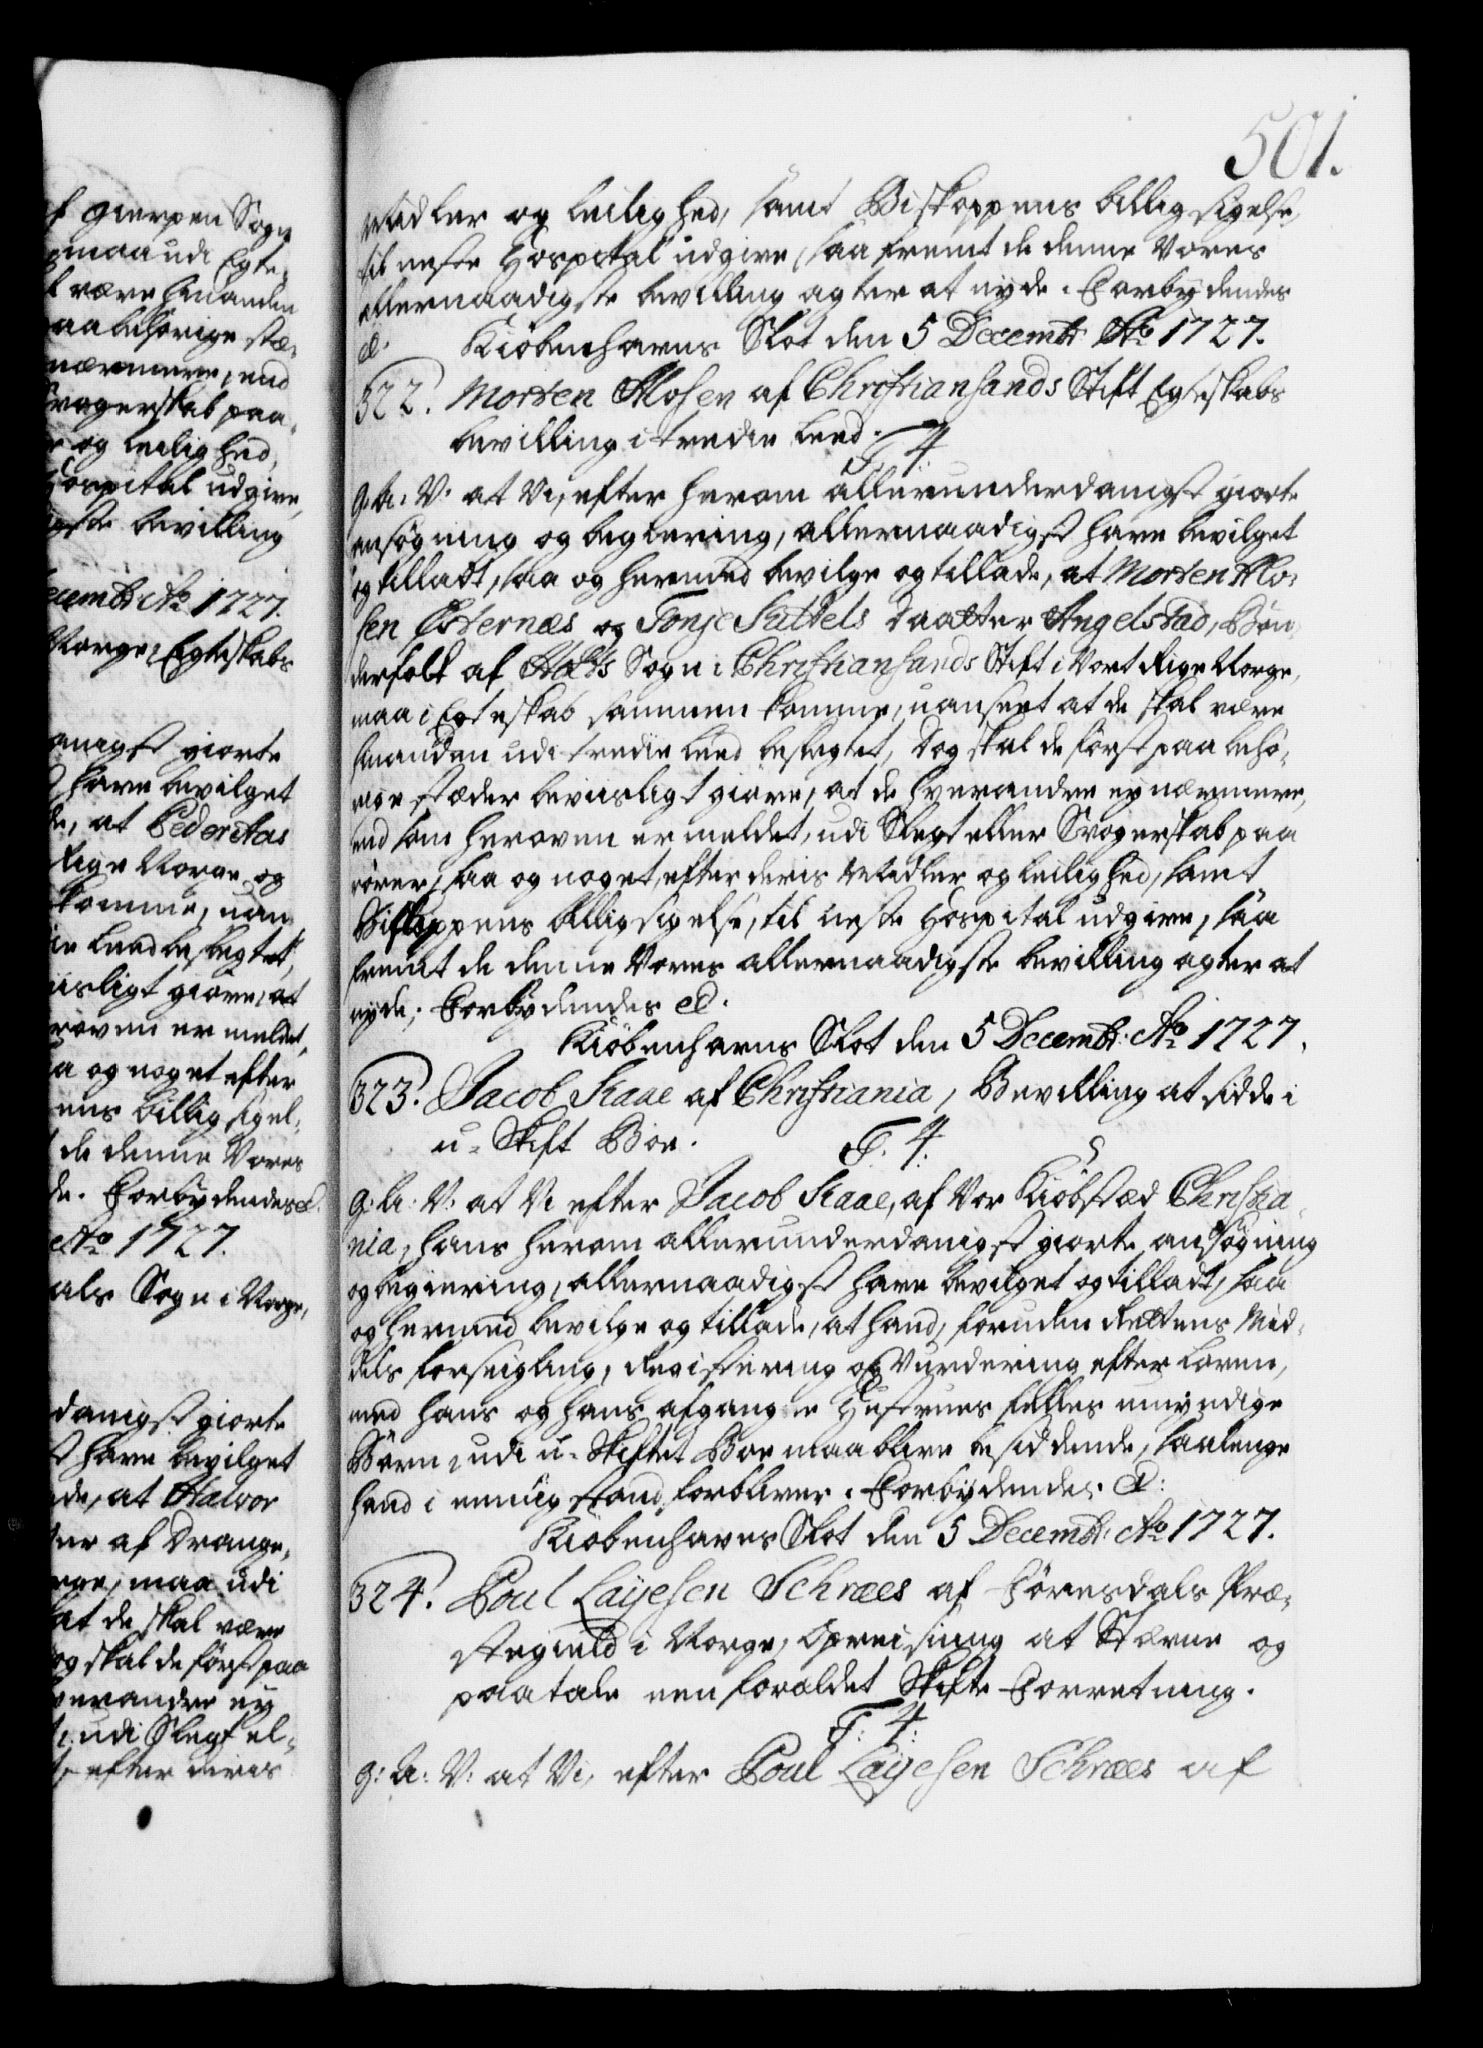 501.
Midler og leilighed, samt Biskoppens billig sigelse,
til neste Hospital udgive, saa fremt de denne Vores
allernaadigste bevilling agter at nyde. Forbydendes
&. Kiøbenhavns Slot den 5 Decembr. Ao 1727.
322. Morten Alosen af Christiansands Stift Egteskabs
bevilling i tredie leed.
F. 4.
G: A: V: at Vi, efter herom allerunderdanigst giorte
ansøgning og begiering, allernaadigst have bevilget
og tilladt, saa og hermed bevilge og tillade, at Morten Alo-
sen Østernæs og Tonje Suttels Daatter Angelstad, Bøn-
derfolk af Holts Sogn i Christiansands Stift i Vort Rige Norge,
maa i Egteskab sammen komme, uanseet at de skal være
hinanden udi tredie leed beslegtet, Dog skal de først paa behø-
rige stæder beviisligt giøre, at de hverandre ey nærmere,
end som heroven er meldet, udi Slegt eller Svogerskab paa
rører, saa og noget, efter deris Midler og leilighed, samt
Biskoppens billigsigelse, til neste Hospital udgive, saa
fremt de denne Vores allernaadigste bevilling agter at
nyde; Forbydendes &.
Kiøbenhavns Slot den 5 Decembr: Ao 1727.
323. Jacob Kaae af Christiania, Bevilling at sidde i
u-Skift Boe.
F. 4.
G: A: V: at Vi efter Jacob Kaae, af Vor Kiøbstæd Christia-
nia, hans herom allerunderdanigst giorte ansøgning
og begiering, allernaadigst have bevilget og tilladt, saa
og hermed bevilge og tillade, at hand, foruden Rettens Mid-
dels forseigling, Registering og Vurdering efter Loven,
med hans og hans afgangne Hustrues felles umyndige
Børn, udi u-Skiftet Boe maa blive besiddende, saalenge
hand i eenlig stand forbliver. Forbydendes &:
Kiøbenhavns Slot den 5 Decembr. Ao 1727.
324. Poul Layesen Schræes af Førresdals Præ-
stegield i Norge, Opreisning at Stævne og
paatale een forældet Skifte Forretning.
F: 4:
G: A: V: at Vi, efter Poul Layesen Schræes af